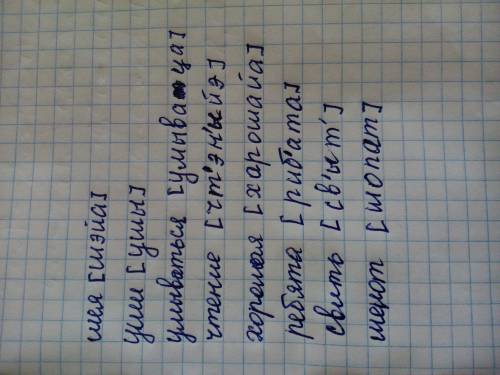 шея [шэйа]
уши [ушы]
умываться [умываца]
чтение [чт'эн'ыйэ]
хорошая [харошайа]
ребята [риб'ата]
свить [св'ыт']
шепот [шопат]